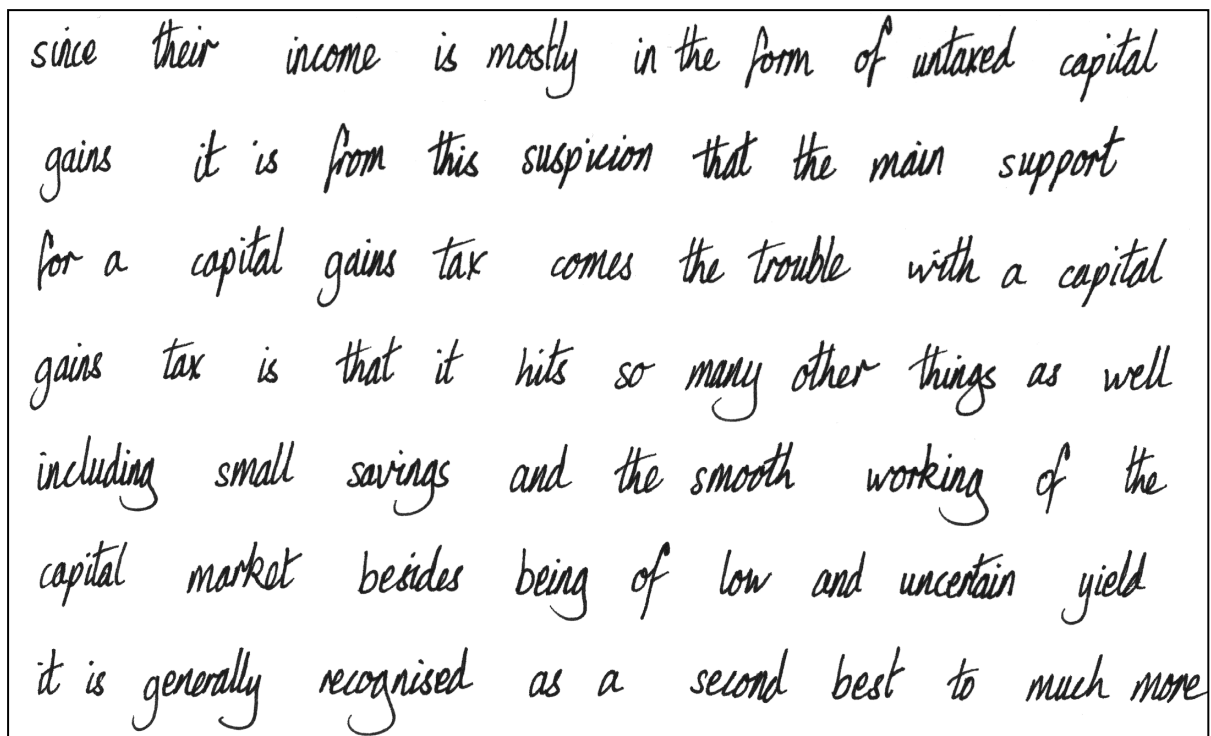 since their income is mostly in the form of untaxed capital
gains it is from this suspicion that the main support
for a capital gains tax comes the trouble with a capital
gains tax is that it hits so many other things as well
including small savings and the smooth working of the
capital market besides being of low and uncertain yield
it is generally recognised as a second best to much more